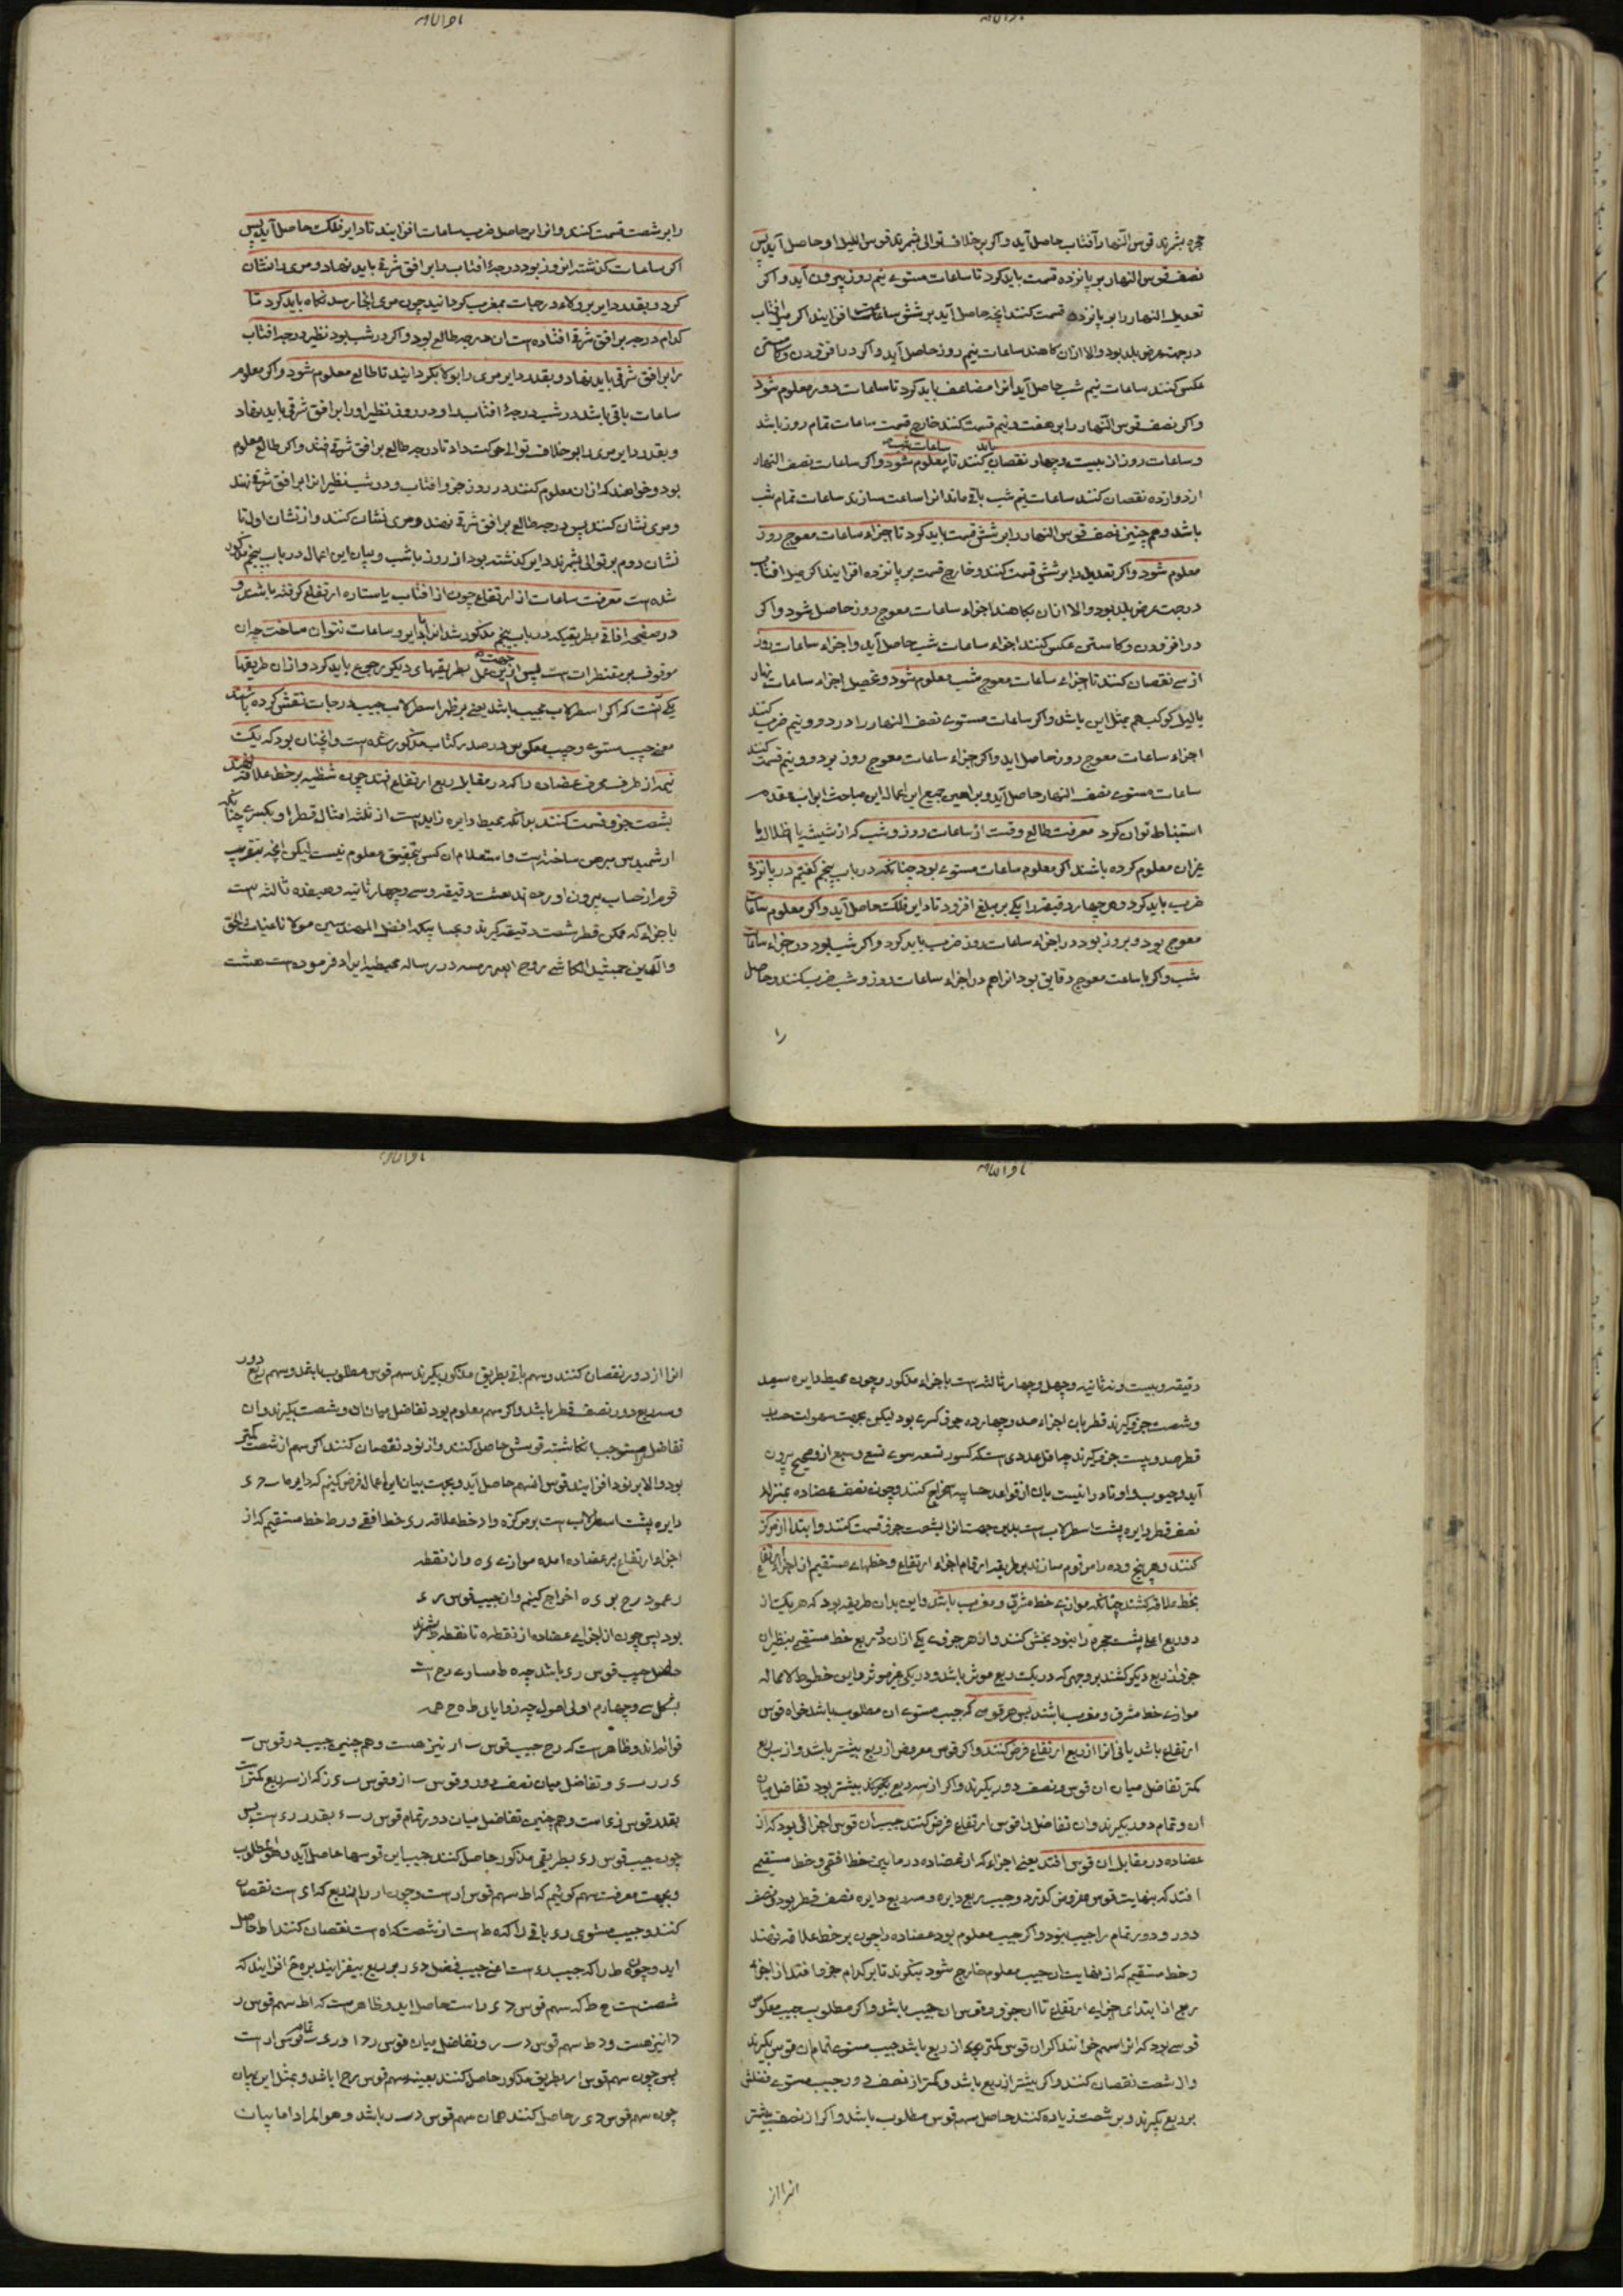 حجره بشمرند قوس النهار آفتاب حاصل آید و اکر بر خلاف توالی شمرند قوس اللیل او حاصل آید پس
نصف قوس النهار بر پانزده قسمت باید کرد تا ساعات مستوی نیم روز بیرون آید و اکر
تعدیل النهار را بر پانزده قسمت کنند انچه حاصل آید بر شش ساعات افزایند اکر میل افتاب
در جهت عرض بلد بود والا ازان کاهند ساعات نیم روز حاصل آید و اکر در افزودن و کاستن
عکس کنند ساعات نیم شب حاصل آید انرا مضاعف باید کرد تا ساعات دور معلوم شود
و اکر نصف قوس النهار را بر هفت و نیم قسمت کنند خارج قسمت ساعات تمام روز باشد
و ساعات روز از بیست و چهار نقصان باید کنند تا ساعات شب معلوم شود و اکر ساعات نصف النهار
از دوازده نقصان کنند ساعات نیم شب باقی ماند انرا ساعت سازند ساعات تمام شب
باشد و هم چنین نصف قوس النهار را بر شش قسمت باید کرد تا اجزاء ساعات معوج روز
معلوم شود و اکر تعدیل را بر شش قسمت کنند و خارج قسمت بر پانزده افزایند اکر میل افتاب
در جهت عرض بلد بود والا ازان بکاهند اجزاء ساعات معوج روز حاصل شود و اکر
در افزودن و کاستن عکس کنند اجزاء ساعات شب حاصل آید و اجزاء ساعات روز
از سی نقصان کنند تا اجزاء ساعات معوج شب معلوم شود و تحصیل اجزاء ساعات نهار
یا لیل کوکب هم بمثل این باشد و اکر ساعات مستوی نصف النهار را در دو و نیم ضرب کنند
اجزاء ساعات معوج روز حاصل اید و اکر اجزاء ساعات معوج روز بر دو و نیم قسمت کنند
ساعات مستوی نصف النهار حاصل آید و براهین جمیع این اعمال از مباحث ابواب مقدم
استنباط توان کرد معرفت طالع وقت از ساعات روز و شب که از شیشه یا اظلال یا
غیران معلوم کرده باشند اکر معلوم ساعات مستوی بود چنانکه در باب پنجم کفتیم در پانزده
ضرب باید کرد و هر چهار دقیقه را یکی بر مبلغ افزود تا دایر فلک حاصل آید و اکر معلوم ساعات
معوج بود و بروز بود در اجزاء ساعات روز ضرب باید کرد و اکر شب بود در اجزاء ساعات
شب و اکر با ساعت معوج دقایق بود انرا هم در اجزاء ساعات روز و شب ضرب کنند و حاصل
را
را بر شصت قسمت کنند و انرا بر حاصل ضرب ساعات افزایند تا دایر فلک حاصل آید پس
اکر ساعات کذشته از روز بود درجهٔ افتاب را بر افق شرقی باید نهاد و مری را نشان
کرد و بقدر دایر بر ولاء درجات بمغرب کردانید چون مری انجا رسد نکاه باید کرد تا
کدام درجه بر افق شرقی افتاده است ان درجه طالع بود و اکر در شب بود نظیر درجه افتاب
را بر افق شرقی باید نهاد و بقدر دایر مری را بولا بکردانیند تا طالع معلوم شود و اکر معلوم
ساعات باقی باشد در شب درجهٔ افتاب را و در روز نظیر او را بر افق شرقی باید نهاد
و بقدر دایر مری را بر خلاف توالی حرکت داد تا درجه طالع بر افق شرقی افتد و اکر طالع معلوم
بود و خواهند که ازان معلوم کنند در روز جزو افتاب و در شب نظیر انرا بر افق شرقی نهند
و مری نشان کنند پس درجه طالع بر افق شرقی نهند و مری نشان کنند و از نشان اول تا
نشان دوم بر توالی بشمرند دایر کذشته بود از روز یا شب و بیان این اعمال در باب پنجم مذکور
شده است معرفت ساعات از ارتفاع چون از افتاب یا ستاره ارتفاع کرفته باشند و
در صفحه افاقی بطریقیکه در باب پنجم مذکور شد انرا با دایر و ساعات نتوان ساخت چه ان
موقوف بر مقنطرات است پس از جهت این عمل بطریقهای دیکر رجوع باید کرد و ازان طریقها
یکی انست که اکر اسطرلاب مجیب باشد یعنی بر ظهر اسطرلاب جیب درجات نقش کرده باشند
معنی جیب مستوی و جیب معکوس در صدر کتاب مذکور شده است و انچنان بود که یک
نیمه از طرف محرف عضاده را که در مقابل ربع ارتفاع افتد چون شظیه بر خط علاقه نهند
بشصت جزو قسمت کنند بدانکه محیط دایره زاید است از ثلثه امثال قطر او بکسری چنانکه
ارشمیدس مبرهن ساخته است و استعلام ان کسر بتحقیق معلوم نیست لیکن انچه بتقریب
قوم از حساب بیرون اورده اند هشت دقیقه و سی و چهار ثانیه و هیفده ثالثه است
باجزاء که ممکن قطر شصت دقیقه کیرند و بحسابیکه افضل المهندسین مولانا غیاث الحق
والدین جمشید الکاشی روح الله رمسه در رساله محیطیه ایراد فرموده است هشت
دقیقه و بیست و نه ثانیه و چهل و چهار ثالثه است باجزاء مذکور و چون محیط دایره سیصد
و شصت جزو کیرند قطر بان اجزاء صد و چهارده جزو و کسری بود لیکن بجهت سهولت حساب
قطر صد و بیست جزو کیرند چه اقل عددی است که کسور تسعه سوی تسع و سبع ازو صحیح بیرون
آید و جیوب و اوتار را نسبت بان از قواعد حسابیه استخراج کنند و چون نصف عضاده بمنزله
نصف قطر دایره پشت اسطرلاب است بدین جهت انرا بشصت جزو قسمت کنند و ابتدا از مرکز
کنند و هر پنج و ده را مرقوم سازند بر طریقه ارقام اجزاء ارتفاع و خطهای مستقیم از اجزاء ارتفاع
بخط علاقه کشند چنانکه موازی خط مشرق و مغرب باشد و این بدان طریقه بود که هر یک از
دو ربع اعلا پشت حجره را بنود بخش کنند و از هر جزوی یکی ازان دو ربع خط مستقیم بنظیر ان
جزو از ربع دیکر کشند بر وجهی که در یک ربع موثر باشد و در دیکر غیر موثر و این خطوط لامحاله
موازی خط مشرق و مغرب باشند پس هر قوسی که جیب مستوی ان مطلوب باشد خواه قوس
ارتفاع باشد یا نی انرا از ربع ارتفاع فرض کنند و اکر قوس مفروض از ربع بیشتر باشد و از سه ربع
کمتر تفاضل میان ان قوس و نصف دور بکیرند و اکر از سه ربع بیشتر بود تفاضل میان
ان و تمام دور بکیرند و ان تفاضل را قوس ارتفاع فرض کنند جیب ان قوس اجزائی بود که از
عضاده در مقابل ان قوس افتد یعنی اجزاء که از عضاده در مابین خط افقی و خط مستقیم
افتد که بنهایت قوس مفروض کذرد و جیب ربع دایره و سه ربع دایره نصف قطر بود و نصف
دور و دور تمام را جیب نبود و اکر جیب معلوم بود عضاده را چون بر خط علاقه نهند
و خط مستقیم که از نهایت ان جیب معلوم خارج شود بنکرند تا بر کدام جزو افتد از اجزاء
ربع از ابتدای اجزای ارتفاع تا ان جزو قوس ان جیب باشد و اکر مطلوب جیب معکوس
قوسی بود که انرا سهم خوانند اکر ان قوس کمتر از ربع باشد جیب مستوی تمام ان قوس بکیرند
و از شصت نقصان کنند و اکر بیشتر از ربع باشد و کمتر از نصف دور جیب مستوی فضلش
بر ربع بکیرند و بر شصت زیاده کنند حاصل سهم قوس مطلوب باشد و اکر از نصف بیشتر
انرا از
انرا از دور نقصان کنند و سهم باقی بطریق مذکور بکیرند سهم قوس مطلوب باشد و سهم ربع دور
و سه ربع دور نصف قطر باشد و اکر سهم معلوم بود تفاضل میان ان و شصت بکیرند و ان
تفاضل را جیب انکاشته قوسش حاصل کنند و از نود نقصان کنند اکر سهم از شصت کمتر
بود والا بر نود افزایند قوس ان سهم حاصل آید و بجهت بیان این اعمال فرض کنیم که دایره
دایره پشت اسطرلاب است بر مرکز ه و خط علاقه و خط افقی و رط خط مستقیم که از
اجزاء ارتفاع بر عضاده امده موازی ی ه و از نقطه
ر عمود رح بر ی ه اخراج کنیم و ان جیب قوس ر ی
بود پس چون از اجزای عضاده از نقطه ه تا نقطه ط بشمرند
حاصل جیب قوس ری باشد چه ه ط مساوی رح است
بشکل سی و چهارم اولی اصول چه زوایای ط ه ح همه
قوائم اند و ظاهر است که رح جیب قوس نیز هست و هم چنین جیب در قوس
و تفاضل میان نصف دور و قوس که از سه ربع کمتر است
بقدر قوس ری است و هم چنین تفاضل میان دور تمام قوس بقدر ری است پس
چون جیب قوس ری بطریق مذکور حاصل کنند جیب این قوسها حاصل آید و هو المطلوب
و بجهت معرفت سهم کوئیم که اط سهم قوس ار است و چون ار را از ربع که ای است نقصان
کنند و جیب مستوی ری باقی را که ه ط است از شصت که اه است نقصان کنند اط حاصل
اید و چون ه ط را که جیب است اعنی جیب فضل بر ربع بیفزایند بر ه افزایند که
شصت است ط که سهم قوس است حاصل اید و ظاهر است که اط سهم قوس
را نیز هست و ط سهم قوس و تفاضل میان قوس و تمام قوس ار است
پس چون سهم قوس ار بطریق مذکور حاصل کنند بعینه سهم قوس باشد و بمثل این بیان
چون سهم قوس حاصل کنند همان سهم قوس باشد و هو المراد اما بیان